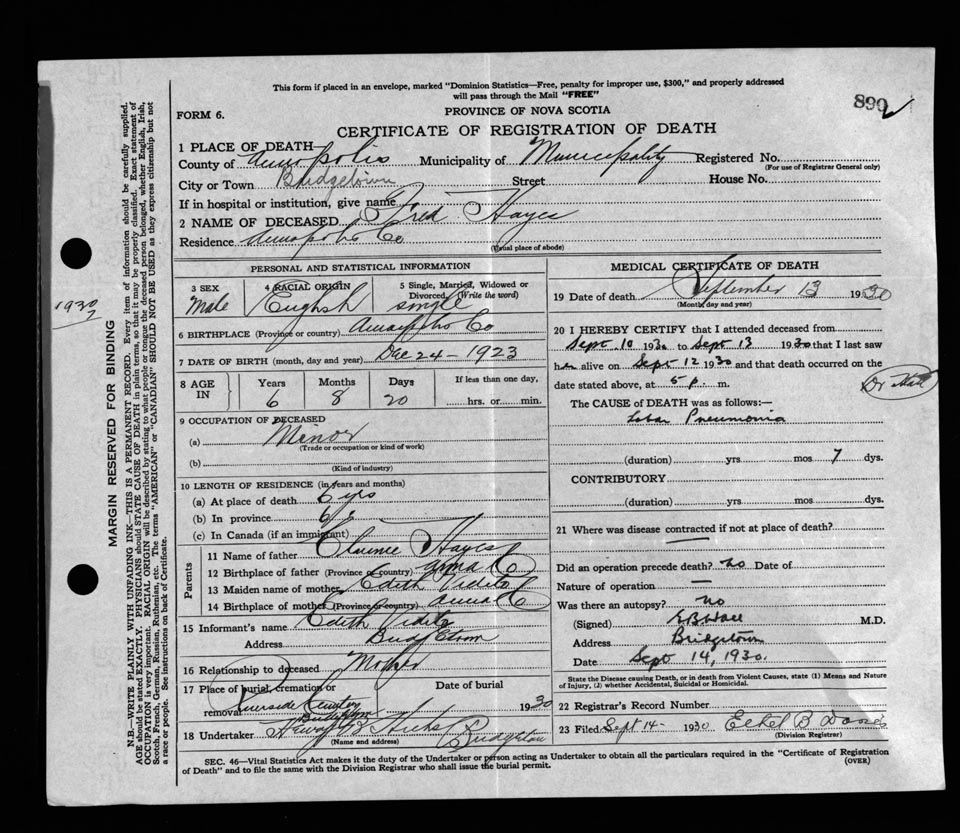 This form if placed in an envelope, marked "Dominion Statistics—Free, penalty for improper use, $300," and properly addressed
will pass through the Mail "FREE"
890
FORM 6.
PROVINCE OF NOVA SCOTIA
CERTIFICATE OF REGISTRATION OF DEATH
1 PLACE OF DEATH
County of Annapolis Municipality of Municipality Registered No.
(For use of Registrar General only)
City or Town Bridgetown Street House No.
If in hospital or institution, give name
2 NAME OF DECEASED Fred Hayes
Residence Annapolis Co
(Usual place of abode)
PERSONAL AND STATISTICAL INFORMATION
3 SEX 4 RACIAL ORIGIN 5 Single, Married, Widowed or
Divorced (Write the word)
Male English single
6 BIRTHPLACE (Province or country) Annapolis Co
7 DATE OF BIRTH (month, day and year) Dec 24 - 1923
8 AGE IN Years Months Days If less than one day,
6 8 20 hrs. or min.
9 OCCUPATION OF DECEASED
(a) Minor
(Trade or occupation or kind of work)
(b)
(Kind of industry)
10 LENGTH OF RESIDENCE (in years and months)
(a) At place of death 6 yrs
(b) In province 6
(c) In Canada (if an immigrant)
Parents
11 Name of father Hayes
12 Birthplace of father (Province or country) Anna Co
13 Maiden name of mother Edith Vidito
14 Birthplace of mother (Province or country) Anna Co
15 Informant's name Edith Vidito
Address Bridgetown
16 Relationship to deceased Mother
17 Place of burial, cremation or Date of burial
removal Riverside Cemetery 1930
Bridgetown
18 Undertaker Hicks Bridgetown
(Name and address)
MEDICAL CERTIFICATE OF DEATH
19 Date of death September 13 1930
(Month, day and year)
20 I HEREBY CERTIFY that I attended deceased from
Sept 10 1930 to Sept 13 1930 that I last saw
h alive on Sept 12 1930 and that death occurred on the
date stated above, at 5 p. m.
Dr Hall
The CAUSE of DEATH was as follows:
Lobar Pneumonia
(duration) yrs mos 7 dys.
CONTRIBUTORY
(duration) yrs. mos. dys.
21 Where was disease contracted if not at place of death?
Did an operation precede death? no Date of
Nature of operation —
Was there an autopsy? no
(Signed) Hall M.D.
Address Bridgetown
Date Sept 14, 1930.
State the Disease causing Death, or in death from Violent Causes, state (1) Means and Nature
of Injury, (2) whether Accidental, Suicidal or Homicidal.
22 Registrar's Record Number
23 Filed Sept 14 - 1930 Ethel B
(Division Registrar)
SEC. 46—Vital Statistics Act makes it the duty of the Undertaker or person acting as Undertaker to obtain all the particulars required in the "Certificate of Registration
of Death" and to file the same with the Division Registrar who shall issue the burial permit.
(OVER)
1930
MARGIN RESERVED FOR BINDING
N.B. WRITE PLAINLY WITH UNFADING INK—THIS IS A PERMANENT RECORD. Every item of information should be carefully supplied.
AGE should be stated EXACTLY. PHYSICIANS should STATE CAUSE OF DEATH in plain terms, so that it may be properly classified. Exact statement of
OCCUPATION is very important. RACIAL ORIGIN will be described by stating to what people or tongue the deceased person belonged, whether English, Irish,
Scotch, French, German, Russian, Ruthenian, etc. The terms "AMERICAN" or "CANADIAN" SHOULD NOT BE USED as they express citizenship but not
a race or people. See instructions on back of Certificate.